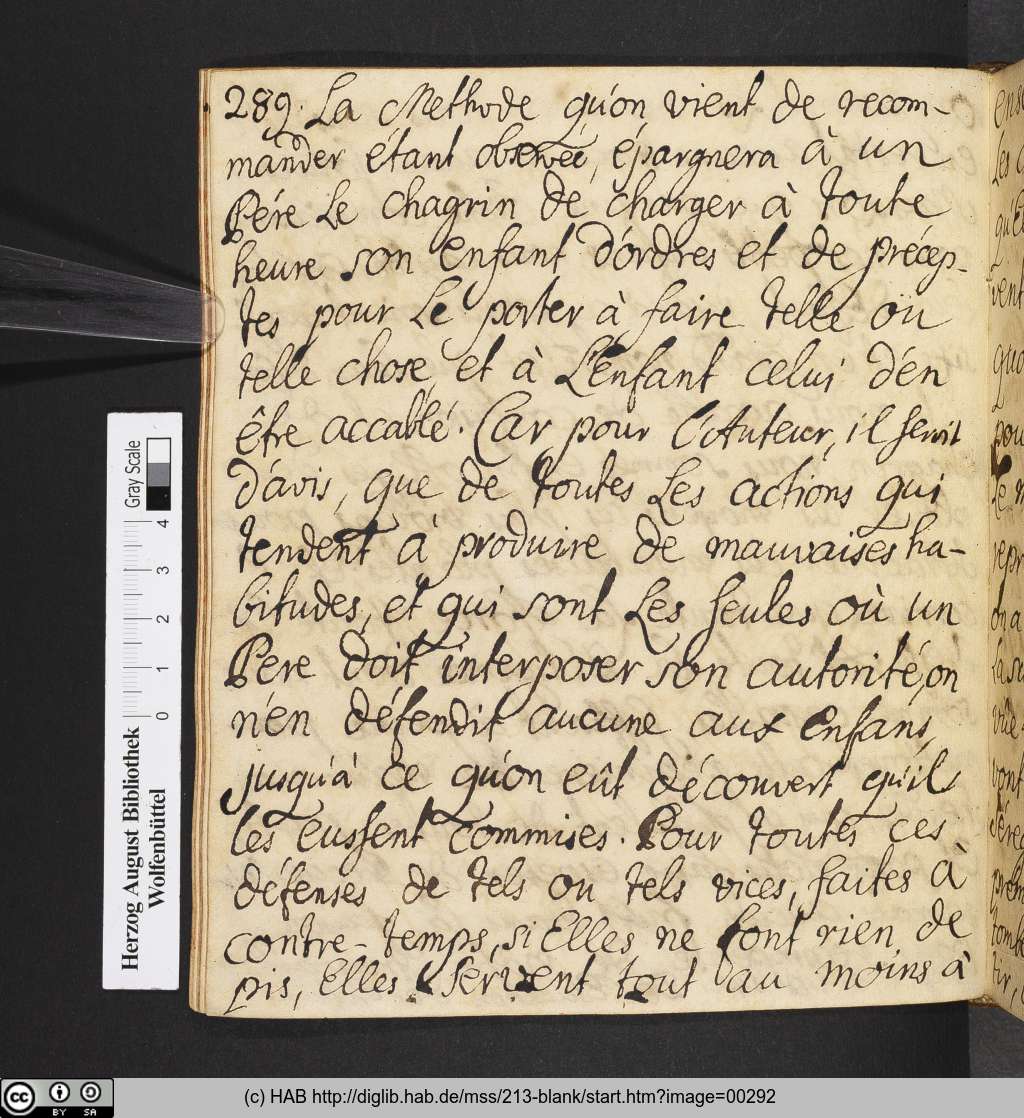 289. La Methode qu'on vient de recom-
mander étant observée, épargnera à un
Pére Le chagrin de charger à toute
heure son Enfant d'ordres et de précep-
tes pour Le porter à faire telle ou
telle chose, et à L'Enfant celui d'en
être accablé. Car pour l'Auteur, il seroit
d'avis, que de toutes Les actions qui
tendent à produire de mauvaises ha-
bitudes, et qui sont Les seules où un
Pere doit interposer son autorité, on
n'en défendit aucune aux Enfans,
jusqu'à ce qu'on eût découvert qu'ils
les eussent commises. Pour toutes ces
défenses de tels ou tels vices, faites à
contre-temps, si Elles ne font rien de
pis, Elles servent tout au moins à
Herzog August Bibliothek
Wolfenbüttel
Gray Scale
0 1 2 3 4
cc BY SA
(c) HAB http://diglib.hab.de/mss/213-blank/start.htm?image=00292